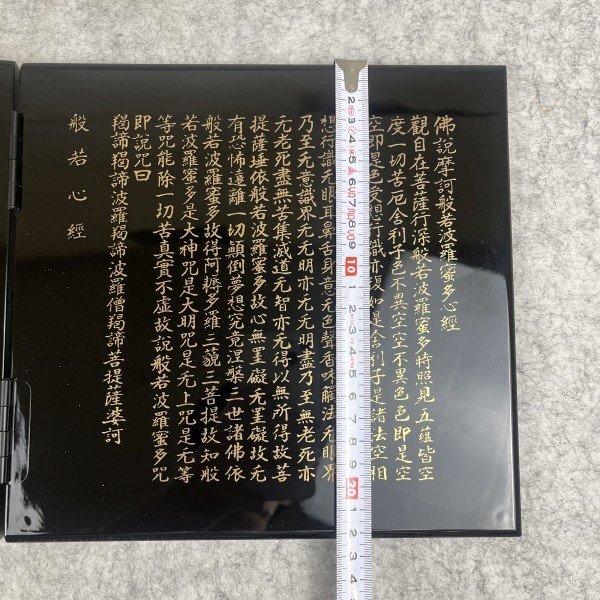 佛說摩訶般若波羅蜜多心經
觀自在菩薩行深般若波羅蜜多時照見五蘊皆空
度一切苦厄舍利子色不異空空不異色色即是空
空即是色受想行識亦復如是舍利子是諸法空相
想行識无眼耳鼻舌身意无色聲香味觸法无眼界
乃至无意識界无无明亦无无明盡乃至無老死亦
无老死盡無苦集滅道无智亦无得以無所得故菩
提薩埵依般若波羅蜜多故心無罣礙无罣礙故无
有恐怖遠離一切顛倒夢想究竟涅槃三世諸佛依
般若波羅蜜多故得阿耨多羅三藐三菩提故知般
若波羅蜜多是大神咒是大明咒是无上咒是无等
等咒能除一切苦真實不虛故說般若波羅蜜多咒
即說咒曰
羯諦羯諦波羅羯諦波羅僧羯諦菩提薩婆訶
般若心經
2 3 4 5 6 7 8 9 10 1 2 3 4 5 6 7 8 9 20 1 2 3 4